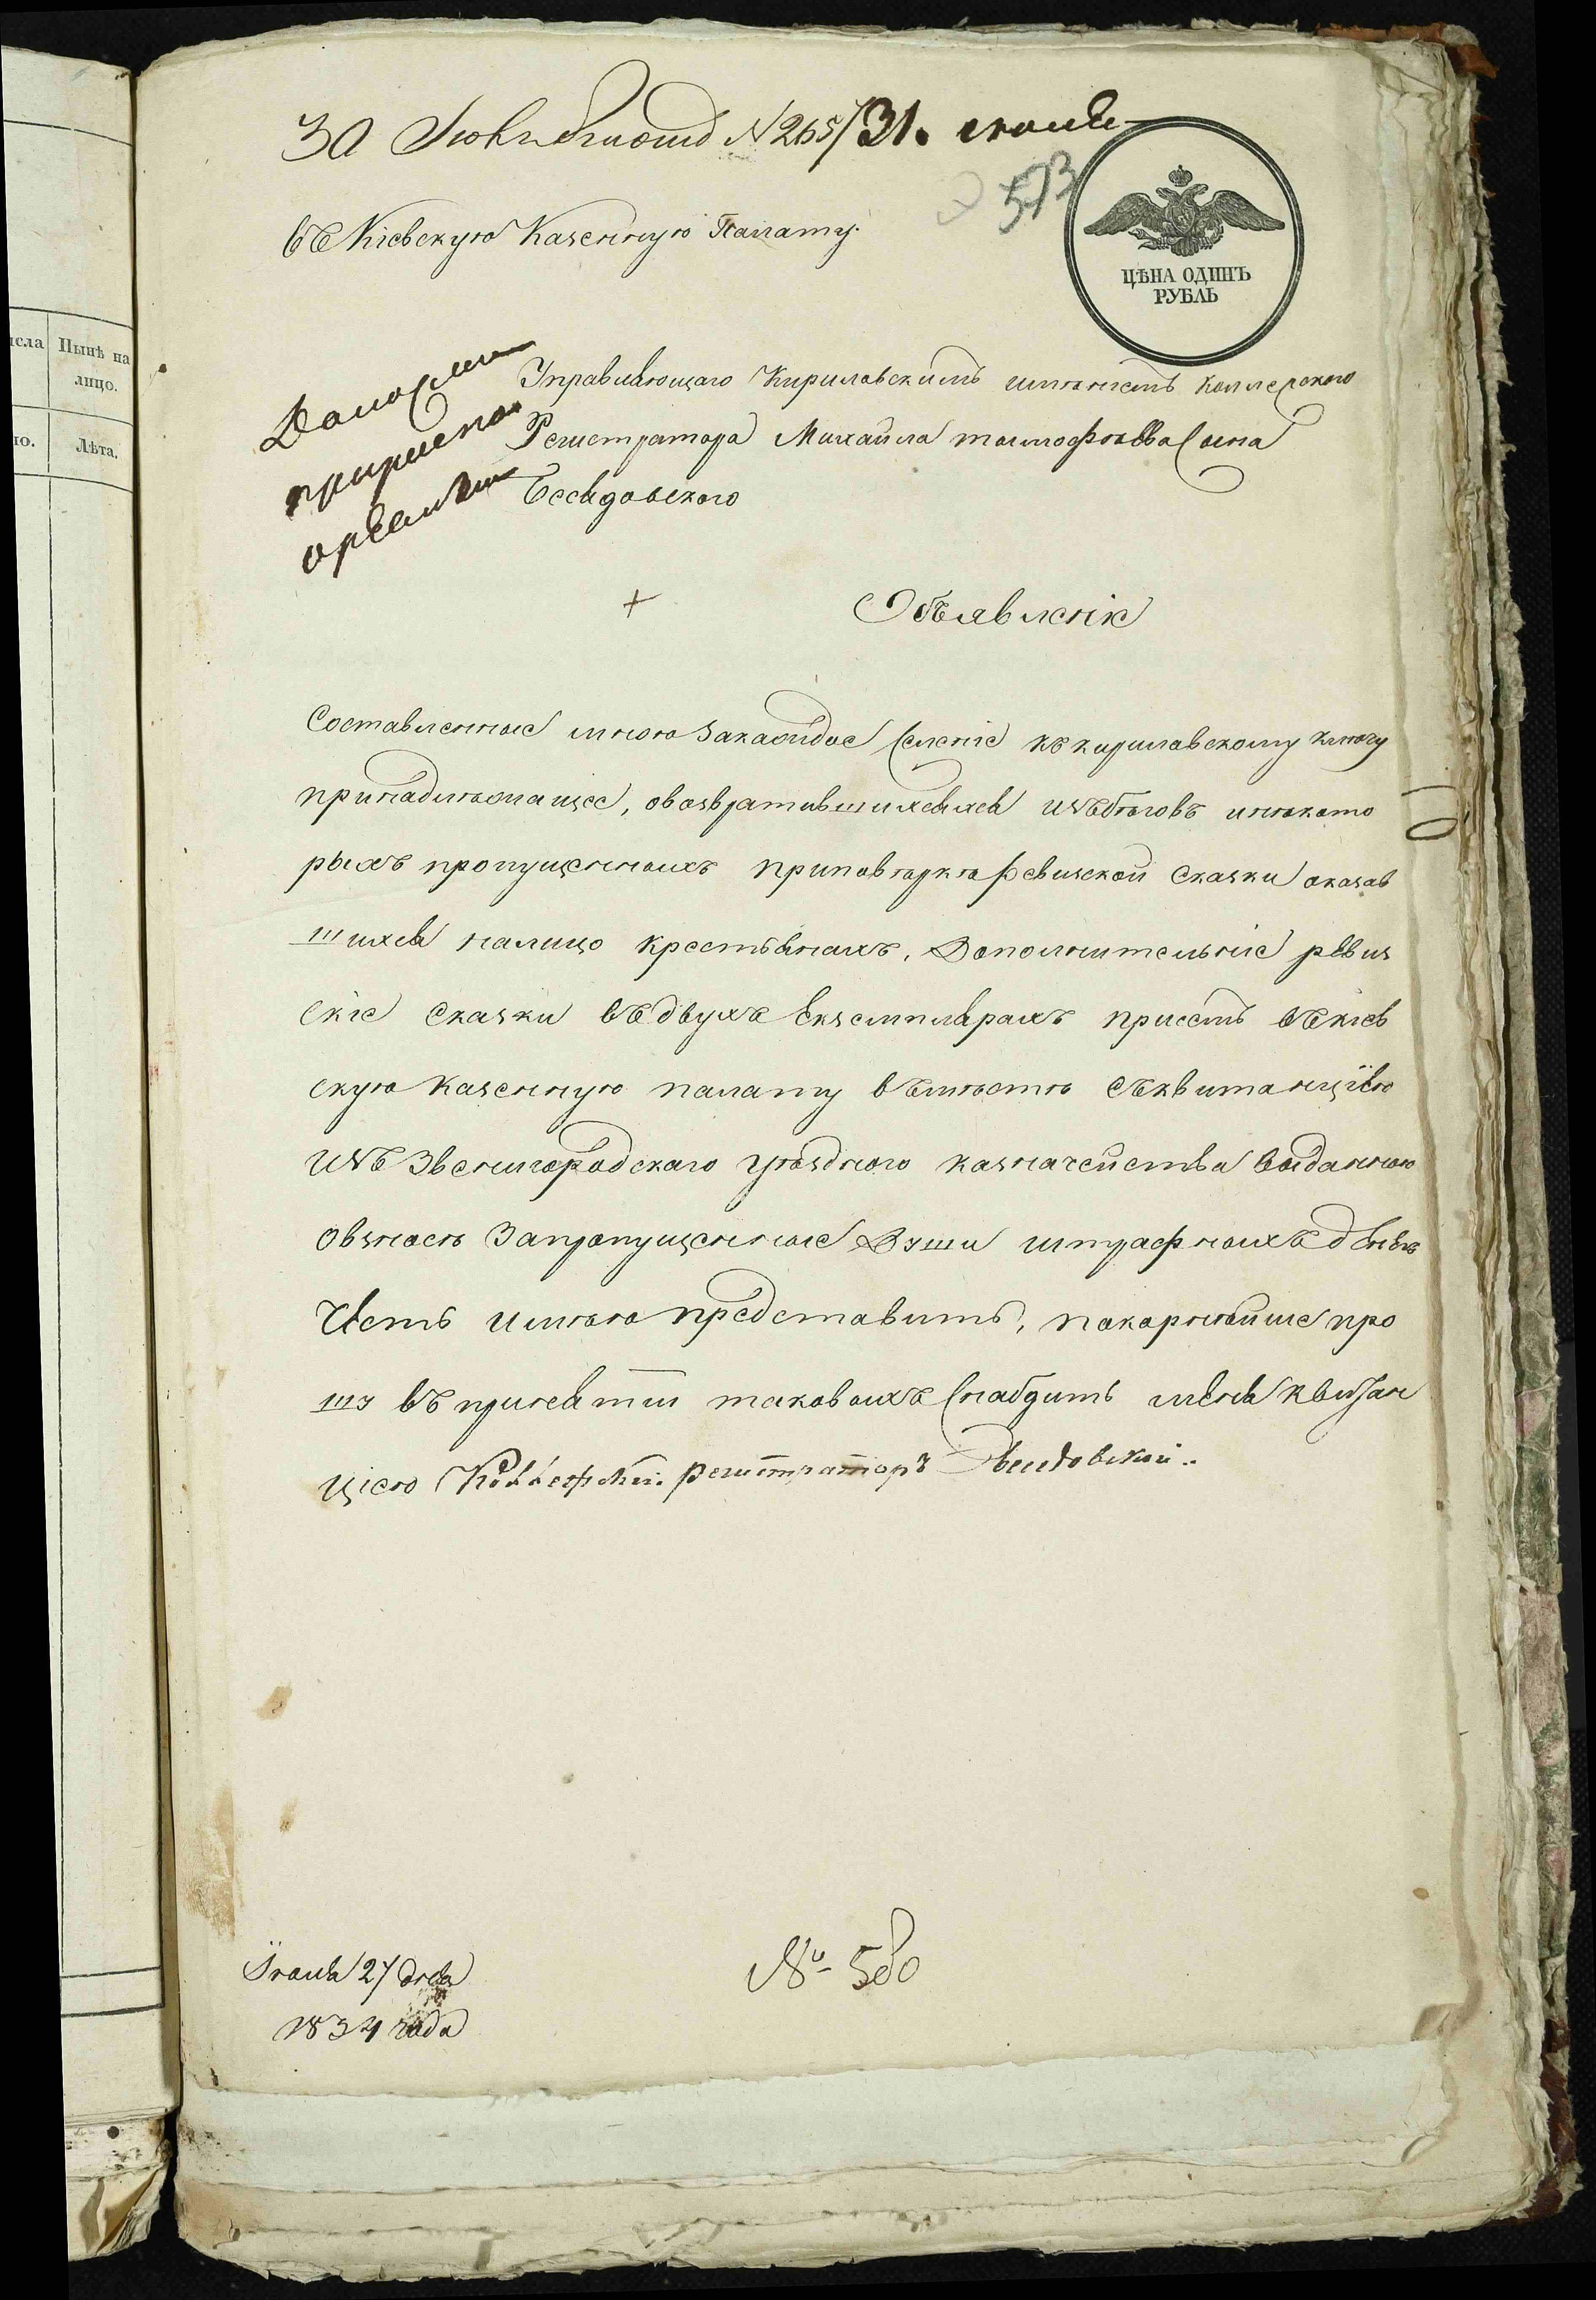 № 265/31. июля
573
въ Кіевскую Казенную Палату.
ЦѢНА ОДИНЪ
РУБЛЬ
исла
Нынѣ на
лицо.
Лѣта.
Управляющаго Кириловскимъ имѣніемъ Коллежскаго
Регистратора Михайла Тимофѣева Сына
Беседовского
Объявленіе
Составленные мною закаждое селеніе къ кириловскому ключу
принадлежащее, овозвратившихсяся изъ бѣговъ инѣкото
рыхъ пропущенныхъ приповѣркѣ Ревизской Сказки оказав
шихся налицо крестьянахъ, Дополнительніе ревиз
скіе сказки въ двухъ екземплярахъ присемъ въ кіев
скую казенную палату вѣмѣстѣ съ квитанціею
изъ Звенигородскаго уѣзднаго казначейства выданною
овзносѣ запропущенные Души штрафныхъ денѣгъ
Честь имѣю представить, покорнѣйше про
шу въ принятіи таковыхъ снабдить меня квитан
ціею Коллежскій регистраторъ Беседовскій..
Іюля 27 дня
1834 года
№ 580